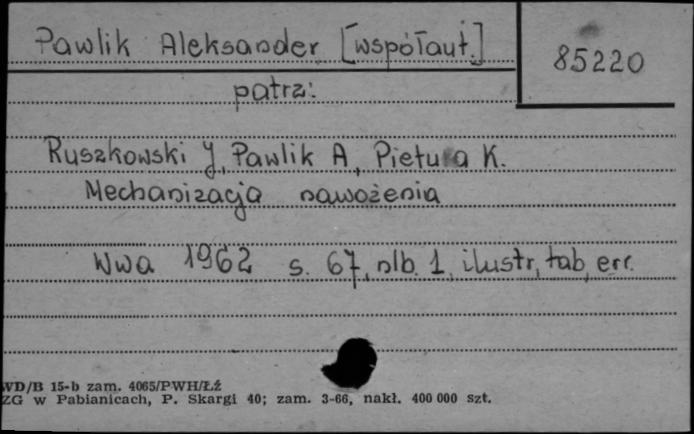 Pawlik Aleksander [współaut.]
85220
patrz:
Ruszkowski J, Pawlik A, Pietura K.
Mechanizacja nawożenia
Wwa 1962 s. 67, nlb. 1, ilustr, tab, err.
WD/B 15-b zam. 4065/PWH/Łź
ZG w Pabianicach, P. Skargi 40; zam. 3-66, nakł. 400 000 szt.